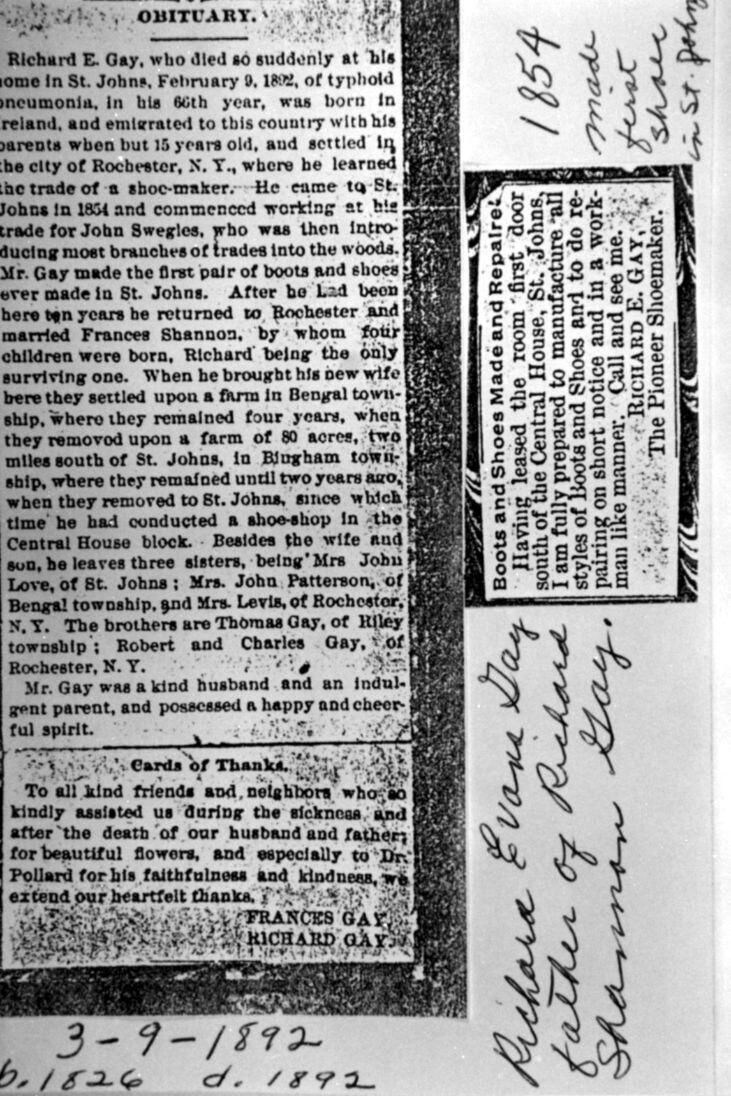 OBITUARY.
Richard E. Gay, who died so suddenly at his
ome in St. Johns, February 9, 1892, of typhoid
neumonia, in his 66th year, was born in
reland, and emigrated to this country with his
arents when but 15 years old, and settled in
the city of Rochester, N. Y., where he learned
the trade of a shoe-maker. He came to St.
Johns in 1854 and commenced working at his
trade for John Swegles, who was then intro-
ducing most branches of trades into the woods.
Mr. Gay made the first pair of boots and shoes
ever made in St. Johns. After he had been
here ten years he returned to Rochester and
married Frances Shannon, by whom four
children were born, Richard being the only
surviving one. When he brought his new wife
here they settled upon a farm in Bengal town-
ship, where they remained four years, when
they removed upon a farm of 80 acres, two
miles south of St. Johns, in Bingham town-
ship, where they remained until two years ago,
when they removed to St. Johns, since which
time he had conducted a shoe-shop in the
Central House block. Besides the wife and
son, he leaves three sisters, being Mrs John
Love, of St. Johns; Mrs. John Patterson, of
Bengal township, and Mrs. Levis, of Rochester,
N. Y. The brothers are Thomas Gay, of Riley
township; Robert and Charles Gay, of
Rochester, N. Y.
Mr. Gay was a kind husband and an indul-
gent parent, and possessed a happy and cheer-
ful spirit.
Cards of Thanks.
To all kind friends and neighbors who so
kindly assisted us during the sickness, and
after the death of our husband and father;
for beautiful flowers, and especially to Dr.
Pollard for his faithfulness and kindness, we
extend our heartfelt thanks.
FRANCES GAY,
RICHARD GAY.
3-9-1892
b. 1826 d. 1892
1854
made
first
shoes
in St. Johns
Boots and Shoes Made and Repaired
Having leased the room first door
south of the Central House, St. Johns,
I am fully prepared to manufacture all
styles of Boots and Shoes and to do re-
pairing on short notice and in a work-
man like manner. Call and see me.
RICHARD E. GAY,
The Pioneer Shoemaker.
Richard Evans Gay
father of Richard
Shannon Gay.